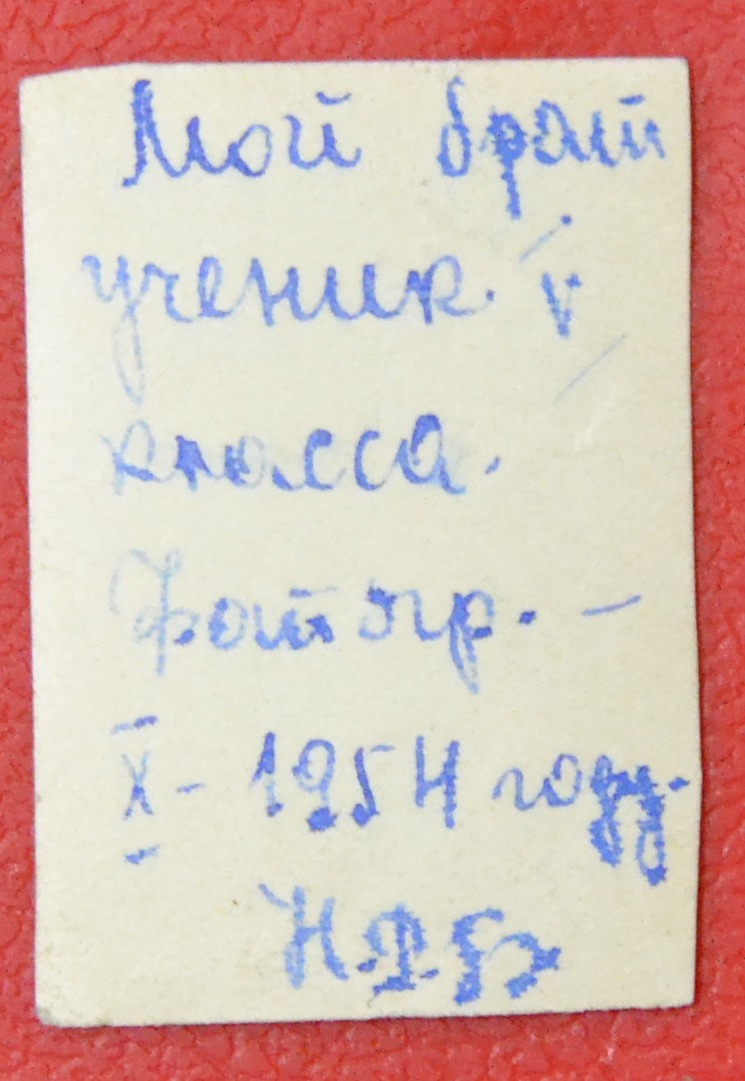 Мой брат
ученик V
класса.
Фотогр. –
X - 1954 году.
Н.Ф.